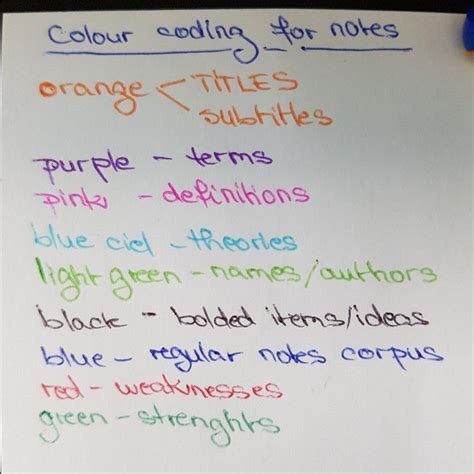 Colour coding for notes
orange < TITLES
subtitles
purple - terms
pink - definitions
blue ciel - theories
light green - names/authors
black - bolded items/ideas
blue - regular notes corpus
red - weaknesses
green - strenghts